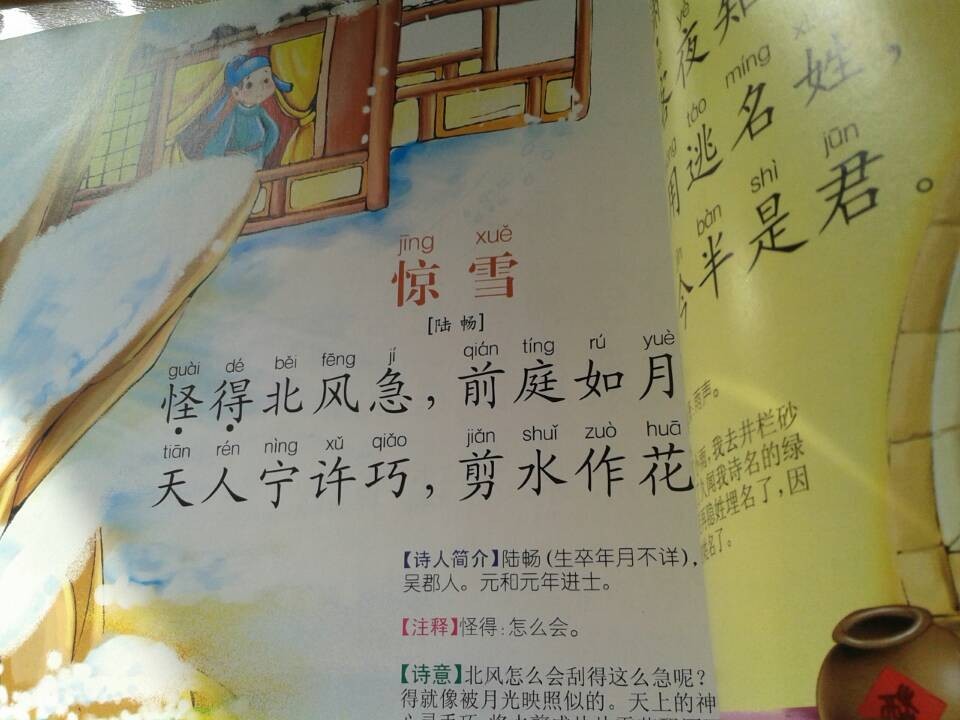 jīng xuě
惊雪
[陆畅]
guài dé běi fēng jí qián tíng rú yuè
怪得北风急，前庭如月
tiān rén nìng xǔ qiǎo jiǎn shuǐ zuò huā
天人宁许巧，剪水作花
【诗人简介】陆畅（生卒年月不详），
吴郡人。元和元年进士。
【注释】怪得：怎么会。
【诗意】北风怎么会刮得这么急呢？
得就像被月光映照似的。天上的神
yè
夜知
táo míng xì
逃名姓，
bàn shì jūn
半是君。
雨声。
我去井栏砂
闻我诗名的绿
隐姓埋名了，因
名了。